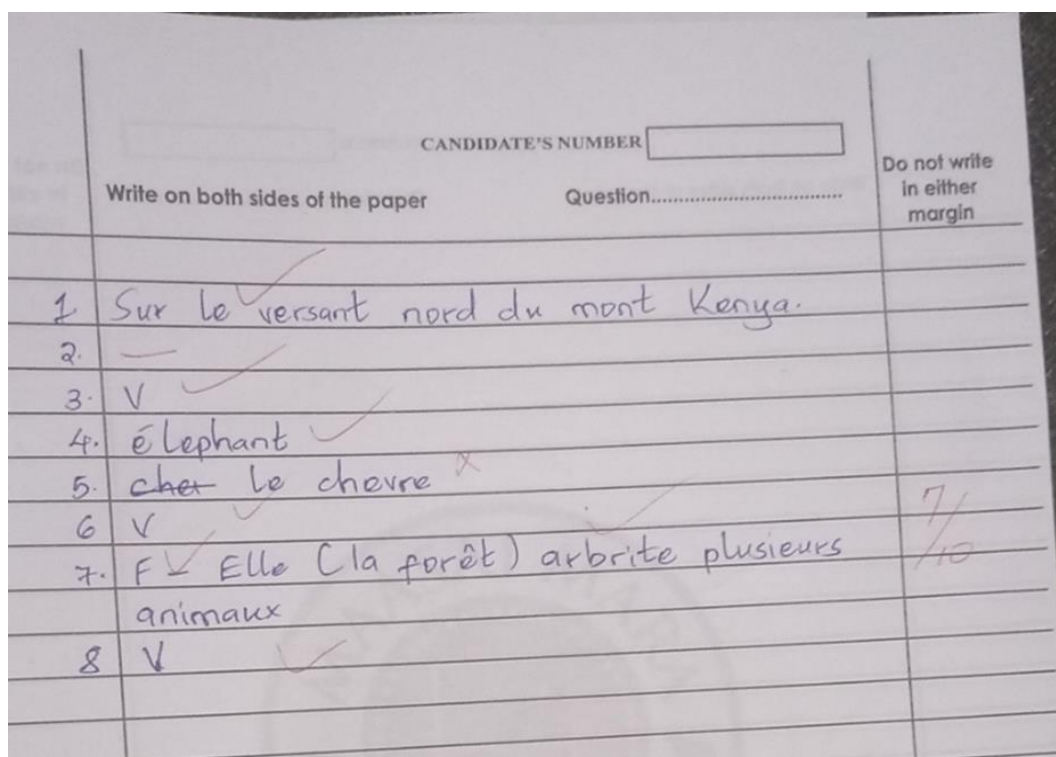 CANDIDATE'S NUMBER
Write on both sides of the paper Question....................................
Do not write
in either
margin
1 Sur le versant nord du mont Kenya.
2. —
3. V
4. élephant
5. cher le chevre
6 V
7. F – Elle (la forêt) arbrite plusieurs
animaux
8 V
7/10